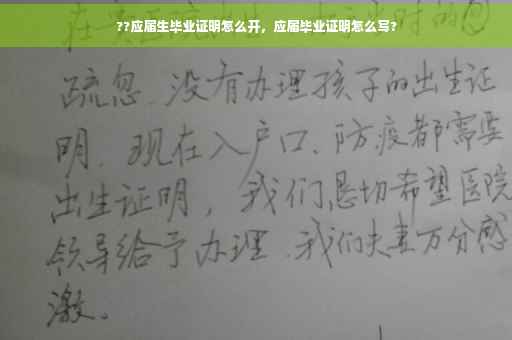 ??应届生毕业证明怎么开，应届毕业证明怎么写?
疏忽.没有办理孩子的出生证
明.现在入户口、防疫都需要
出生证明，我们恳切希望医院
领导给予办理.我们夫妻万分感
激。